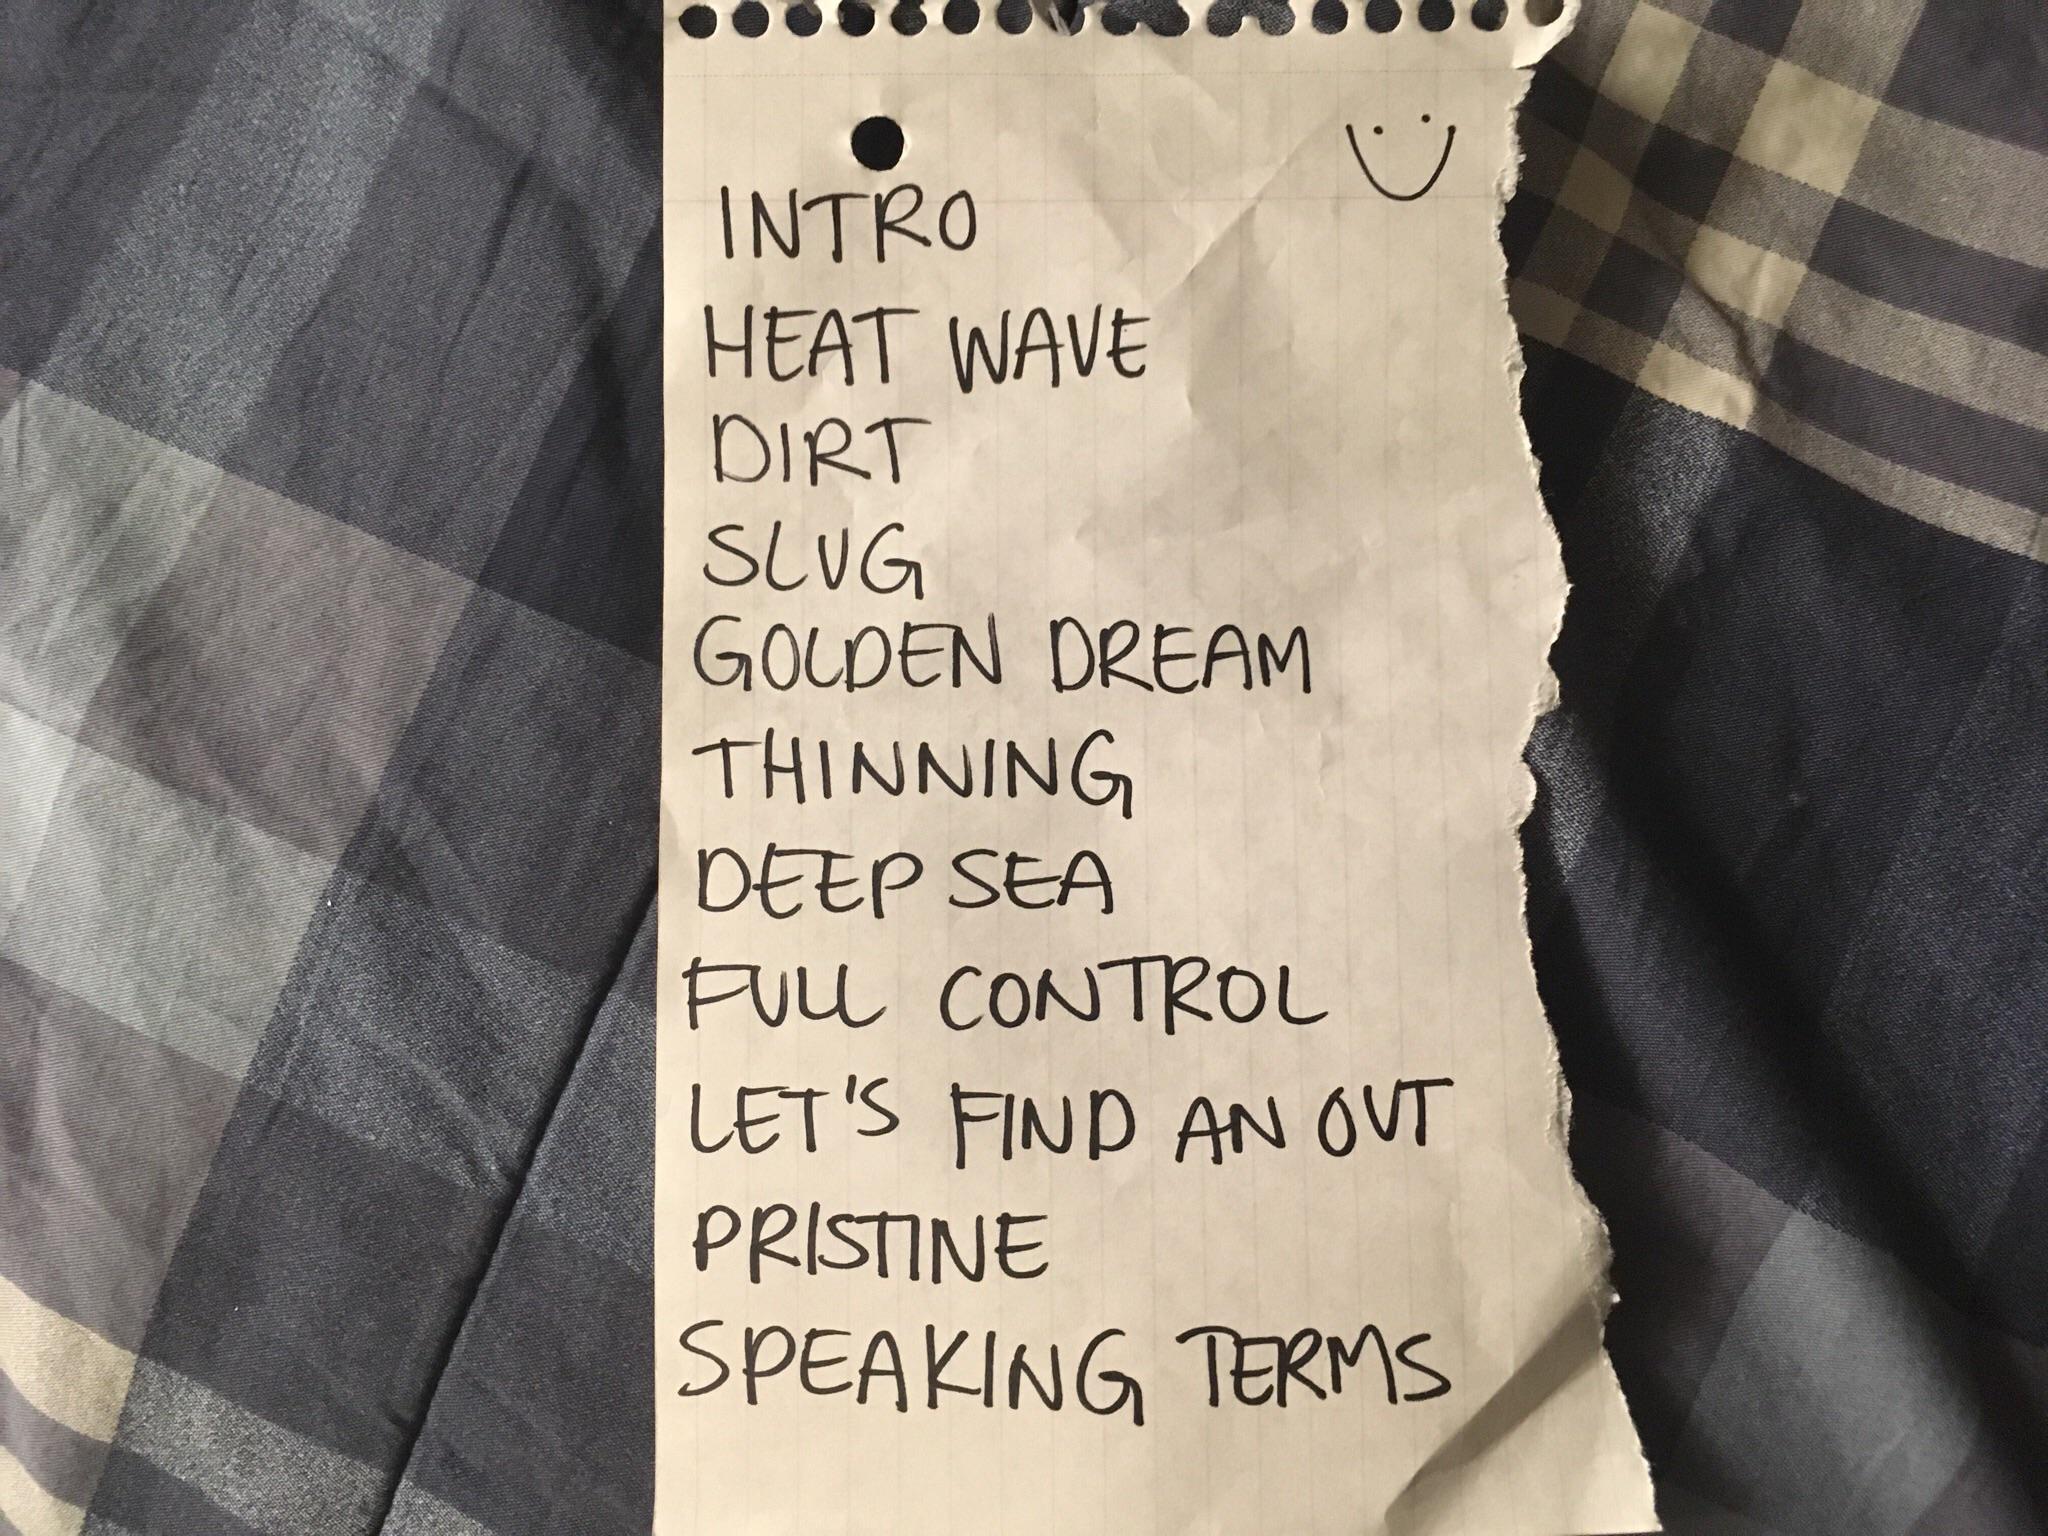 INTRO
HEAT WAVE
DIRT
SLUG
GOLDEN DREAM
THINNING
DEEP SEA
FULL CONTROL
LET'S FIND AN OUT
PRISTINE
SPEAKING TERMS